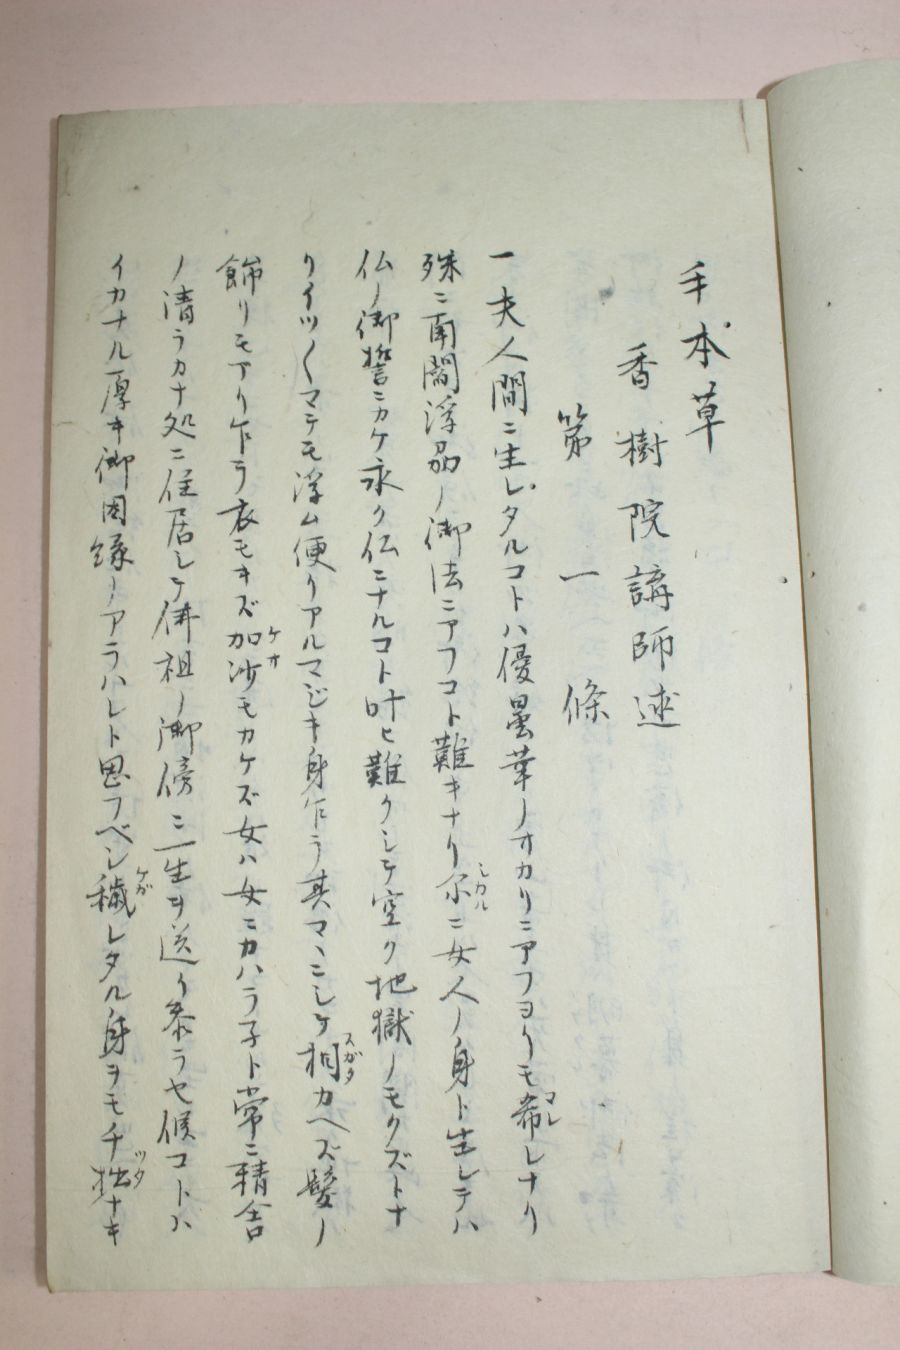 手本草
香樹院講師述
第一條
一夫人間ニ生レタルコトハ優曇華ノオカリニアフヨリモ希レナリ
マレ
殊ニ南閻浮刕ノ御法ニアフコト難キナリ尓ニ女人ノ身ト生レテハ
シカル
仏ノ御誓ニカケ永ク仏ニナルコト叶ヒ難クシテ空ク地獄ノモクズトナ
リイツ〱マテモ浮ム便リアルマジキ身乍ラ其マヽニシテ相カヘズ髪ノ
スガタ
飾リモアリ乍ラ衣モキズ加沙モカケズ女ハ女ニカハラ子ト常ニ精舎
ケサ
ノ清ラカナ処ニ住居シテ佛祖ノ御傍ニ一生ヲ送リ泰ラセ候コトハ
イカナル厚キ御因縁ノアラハレト思フベシ穢レタル身ヲモチ拙ナキ
ケガ
ツタ